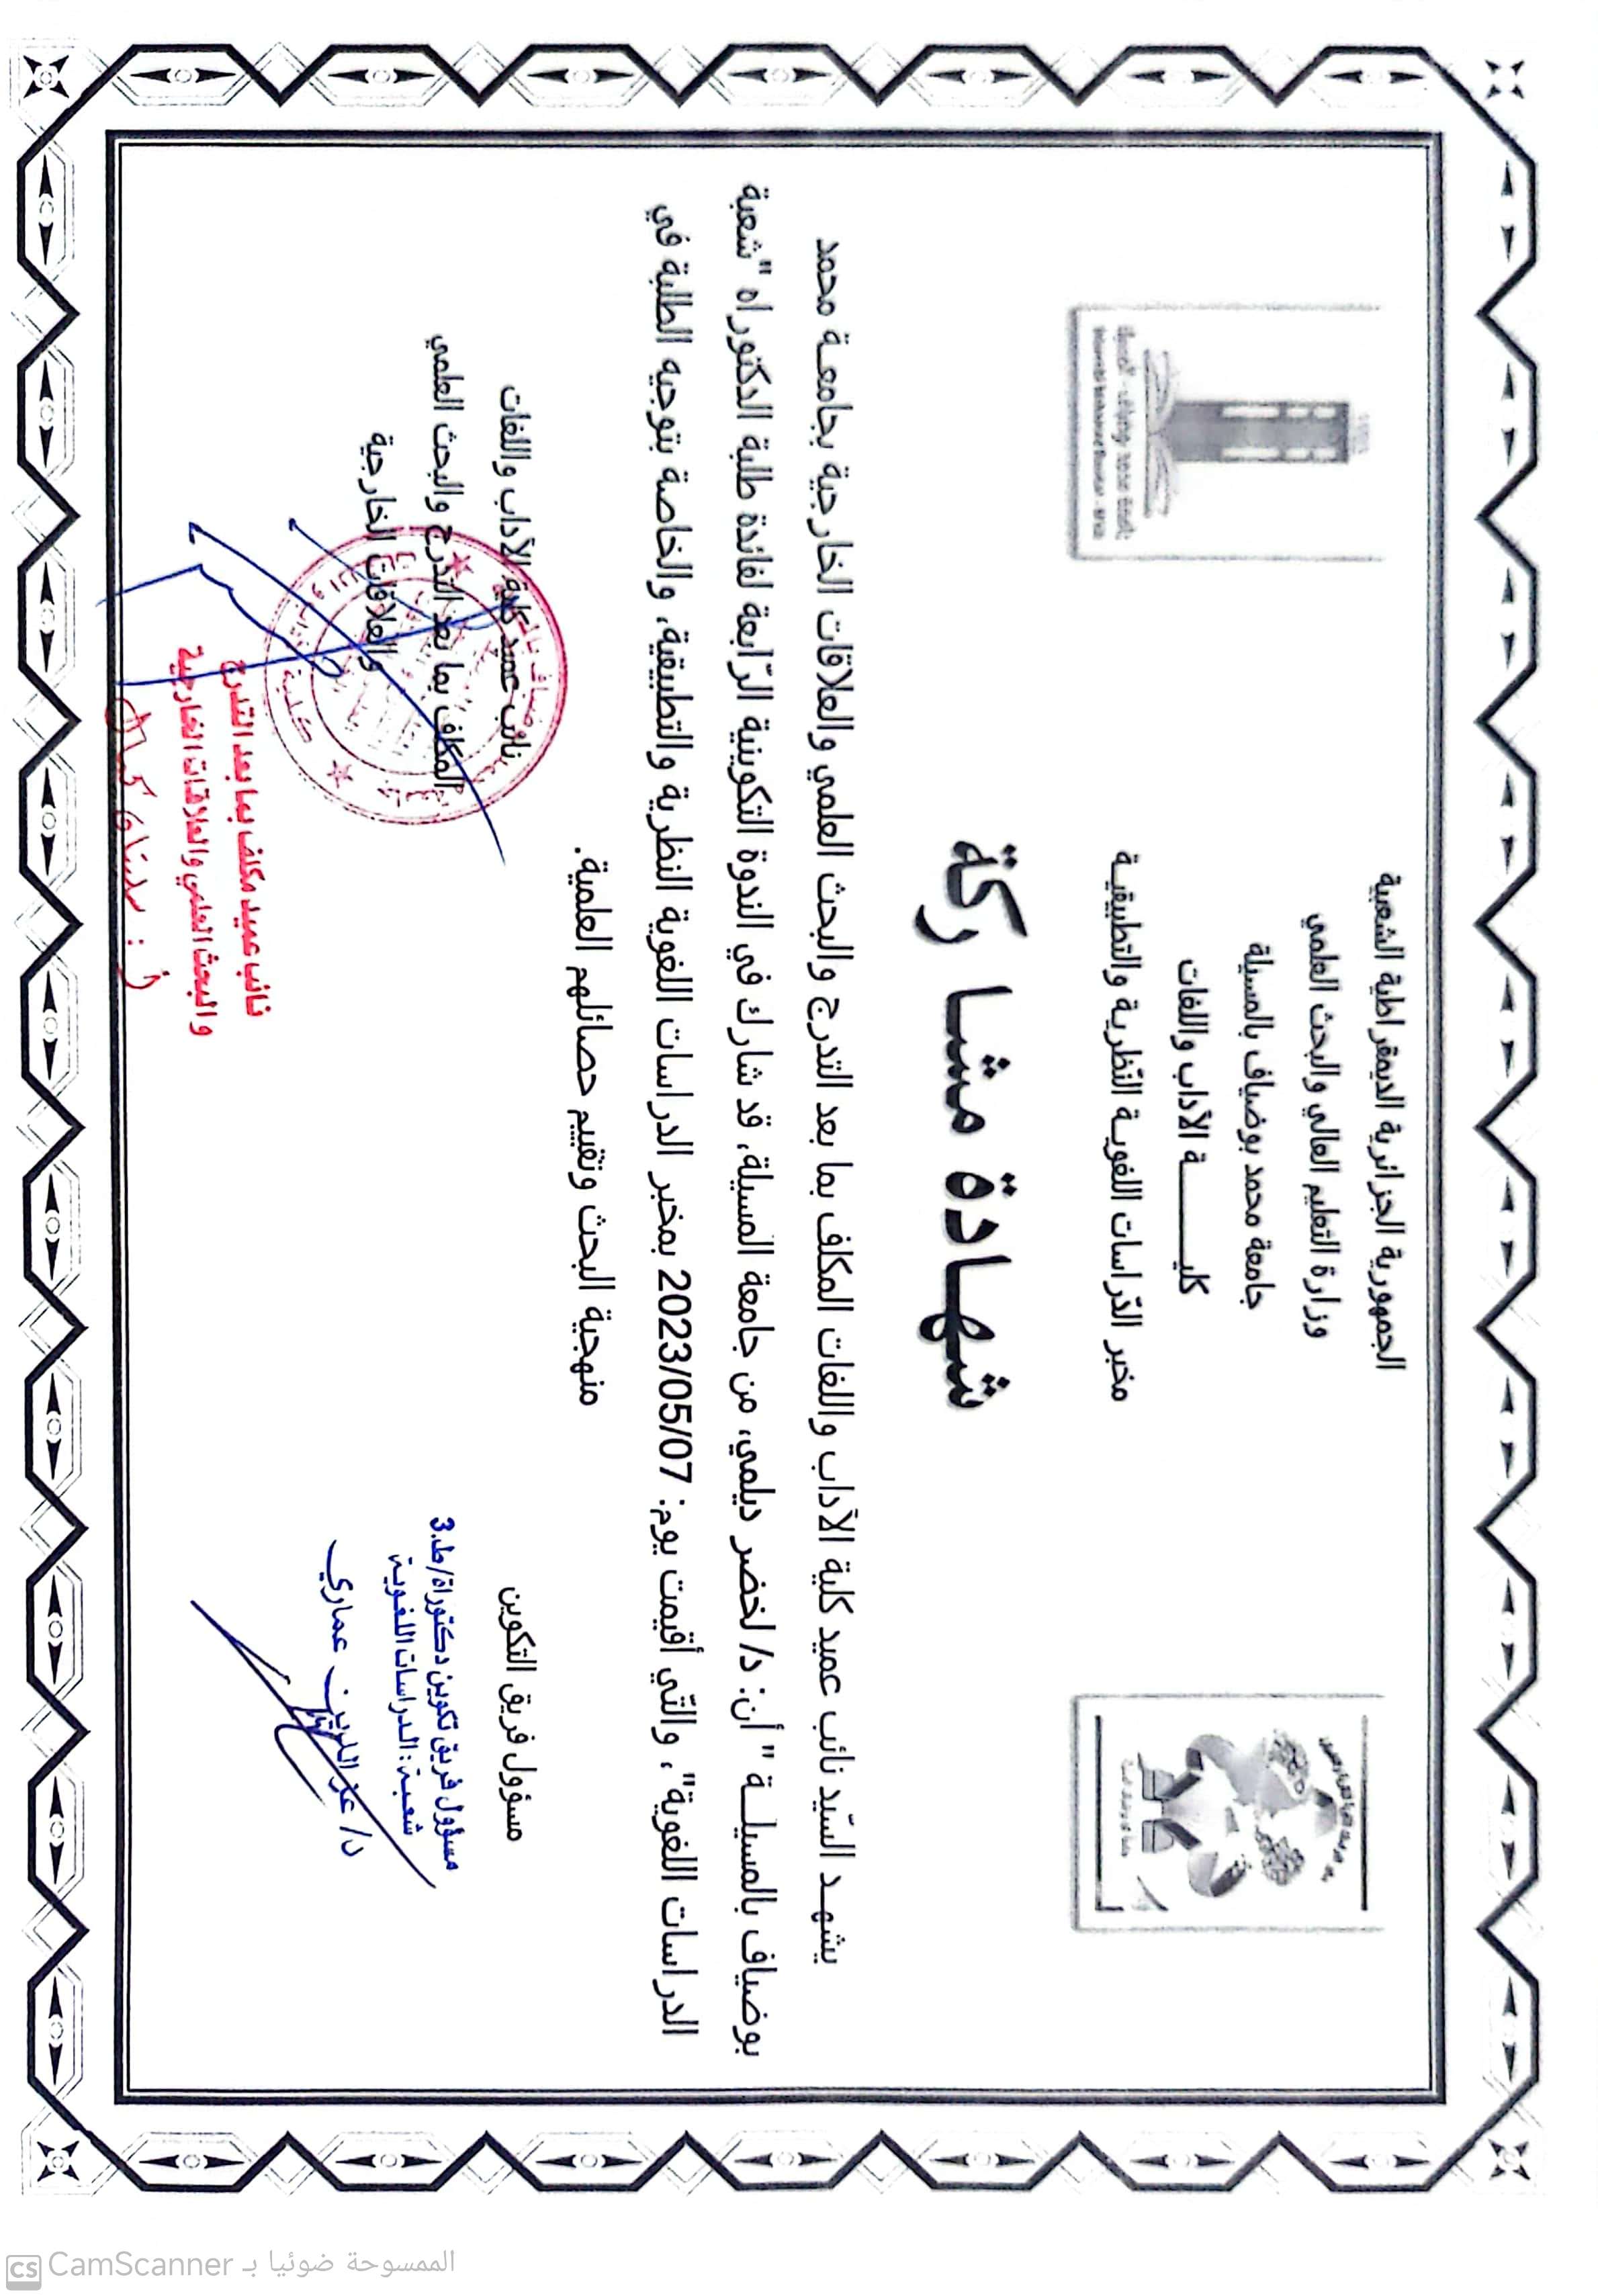 الجمهورية الجزائرية الديمقراطية الشعبية
وزارة التعليم العالي والبحث العلمي
جامعة محمد بوضياف بالمسيلة
كليـــــــة الآداب واللغات
مخبر الدّراسات اللغويـة النّظرية والتطبيقيـة
شهـادة مشاركة
يشهـد السّيد نائب عميد كلية الآداب واللغات المكلف بما بعد التدرج والبحث العلمي والعلاقات الخارجية بجامعـة محمد
بوضياف بالمسيلـة " أن: د/ لخضر ديلمي، من جامعة المسيلة، قد شارك في الندوة التكوينية الرّابعة لفائدة طلبة الدكتوراه "شعبة
الدراسات اللغوية"، والتي أقيمت يوم: 2023/05/07 بمخبر الدراسات اللغوية النظرية والتطبيقية، والخاصة بتوجيه الطلبة في
منهجية البحث وتقييم حصائلهم العلمية.
مسؤول فريق التكوين
مسؤول فريق تكوين دكتوراة/ط.3
شعبة: الدراسات اللغوية
د/ عز الدين عماري
نائب عميد كلية الآداب واللغات
المكلف بما بعد التدرج والبحث العلمي
والعلاقات الخارجية
نائب عميد مكلف بما بعد التدرج
والبحث العلمي والعلاقات الخارجية
الممسوحة ضوئيا بـ CamScanner